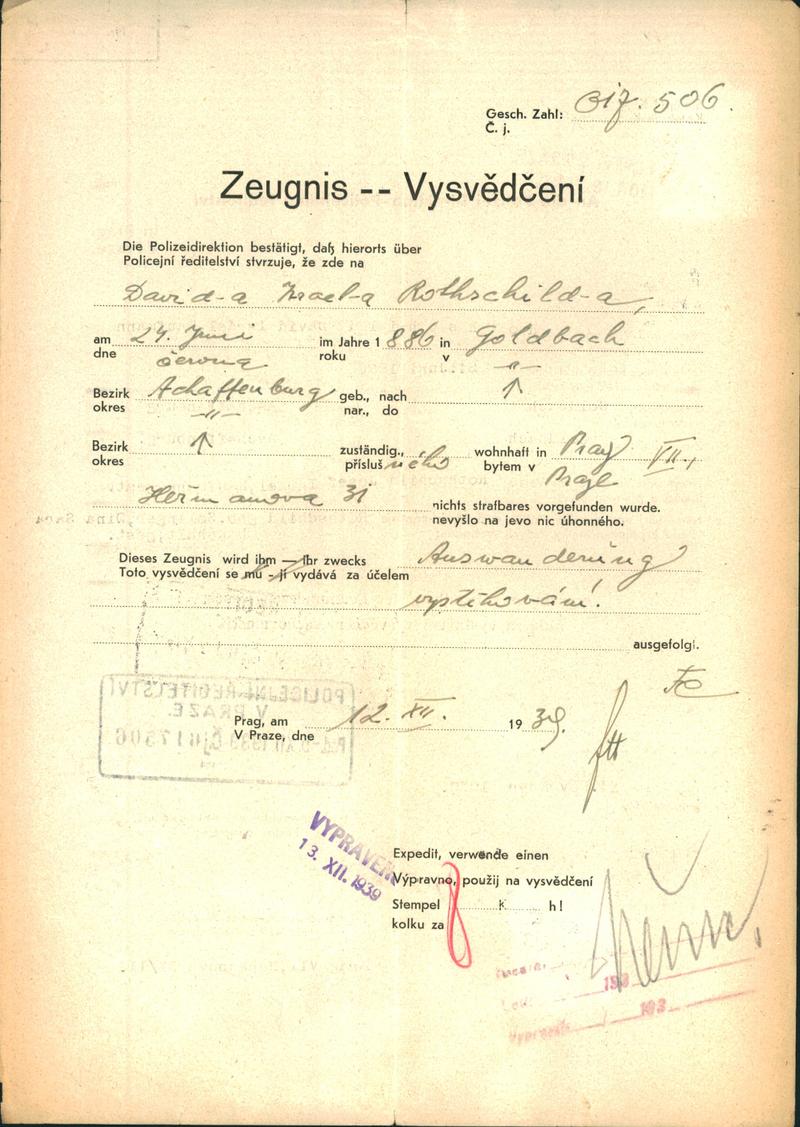 Gesch. Zahl: 506.
Č. j.
Zeugnis -- Vysvědčení
Die Polizeidirektion bestätigt, daß hierorts über
Policejní ředitelství stvrzuje, že zde na
David-a Israel-a Rothschild-a,
am 24. Juni im Jahre 1886 in Goldbach
dne června roku v -"-
Bezirk Achaffenburg geb., nach ↑
okres -"- nar., do
Bezirk ↑ zuständig., wohnhaft in Prag VII.,
okres příslušného bytem v Praze
Heřmanova 31 nichts strafbares vorgefunden wurde.
nevyšlo na jevo nic úhonného.
Dieses Zeugnis wird ihm — ihr zwecks Auswanderung
Toto vysvědčení se mu - jí vydává za účelem
vystěhování.
ausgefolgt.
Prag, am 12. XII. 1939.
V Praze, dne
POLICEJNÍ ŘEDITELSTVÍ
V PRAZE
VYPRAVENO
13. XII. 1939
Expedit, verwende einen
Výpravno, použij na vysvědčení
Stempel K h!
kolku za
193
193